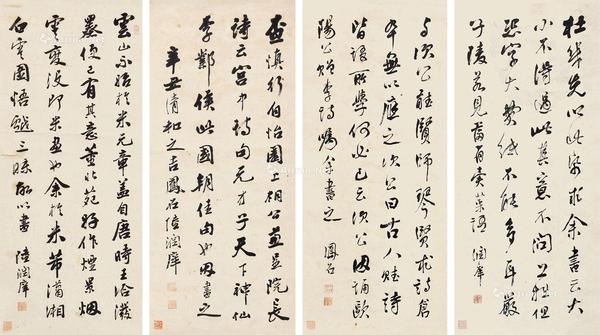 杜幾先以此紙求余書云大
小不得過此其意不問工拙但
恐字大費紙不能多耳嚴
子陵若見當有賣菜語 潤庠
與次公聽賢師琴賢求詩倉
卒無以應之次公曰古人賦詩
皆誦所學何必已云次公因誦歐
陽公贈李師詩囑余書之 鳳石
查慎行自怡園相公並呈院長
詩云宮中詩句元才子天下神仙
李鄴侯此國朝佳句也因書之
辛丑清和之吉鳳石陸潤庠
雲山不始於米元章蓋自唐時王洽潑
墨便已有其意董北苑好作煙景煙
雲變沒即米畫也余於米芾瀟湘
白雲圖悟戲三昧故以書 陸潤庠